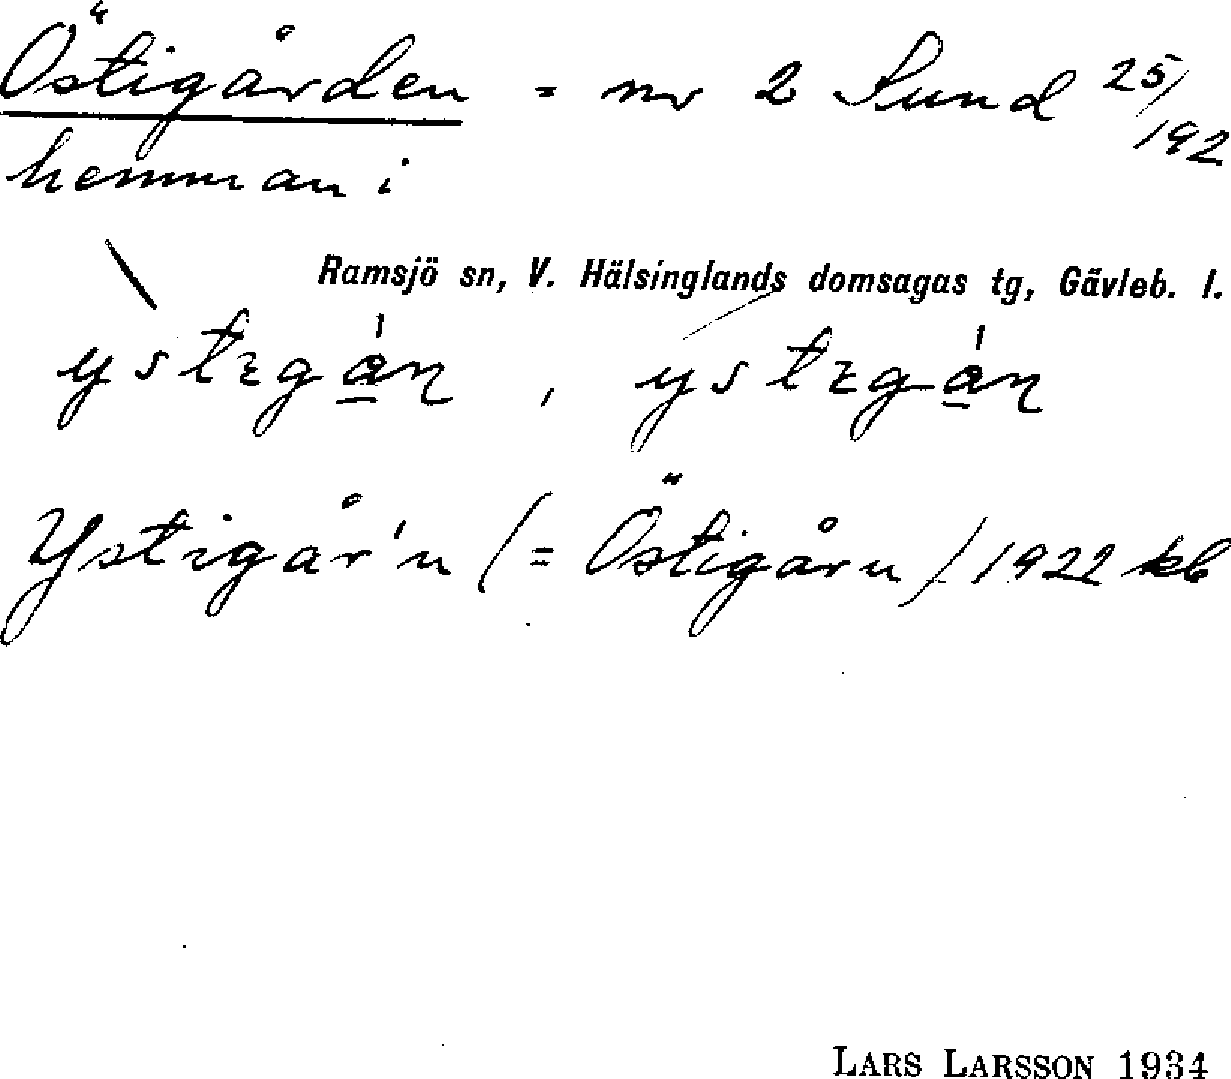 Östigården = nr 2 Sund 25/192
hemman i
Ramsjö sn, V. Hälsinglands domsagas tg, Gävleb. l.
Ystigår'n (= Östigårn) 1922 kb
LARS LARSSON 1934